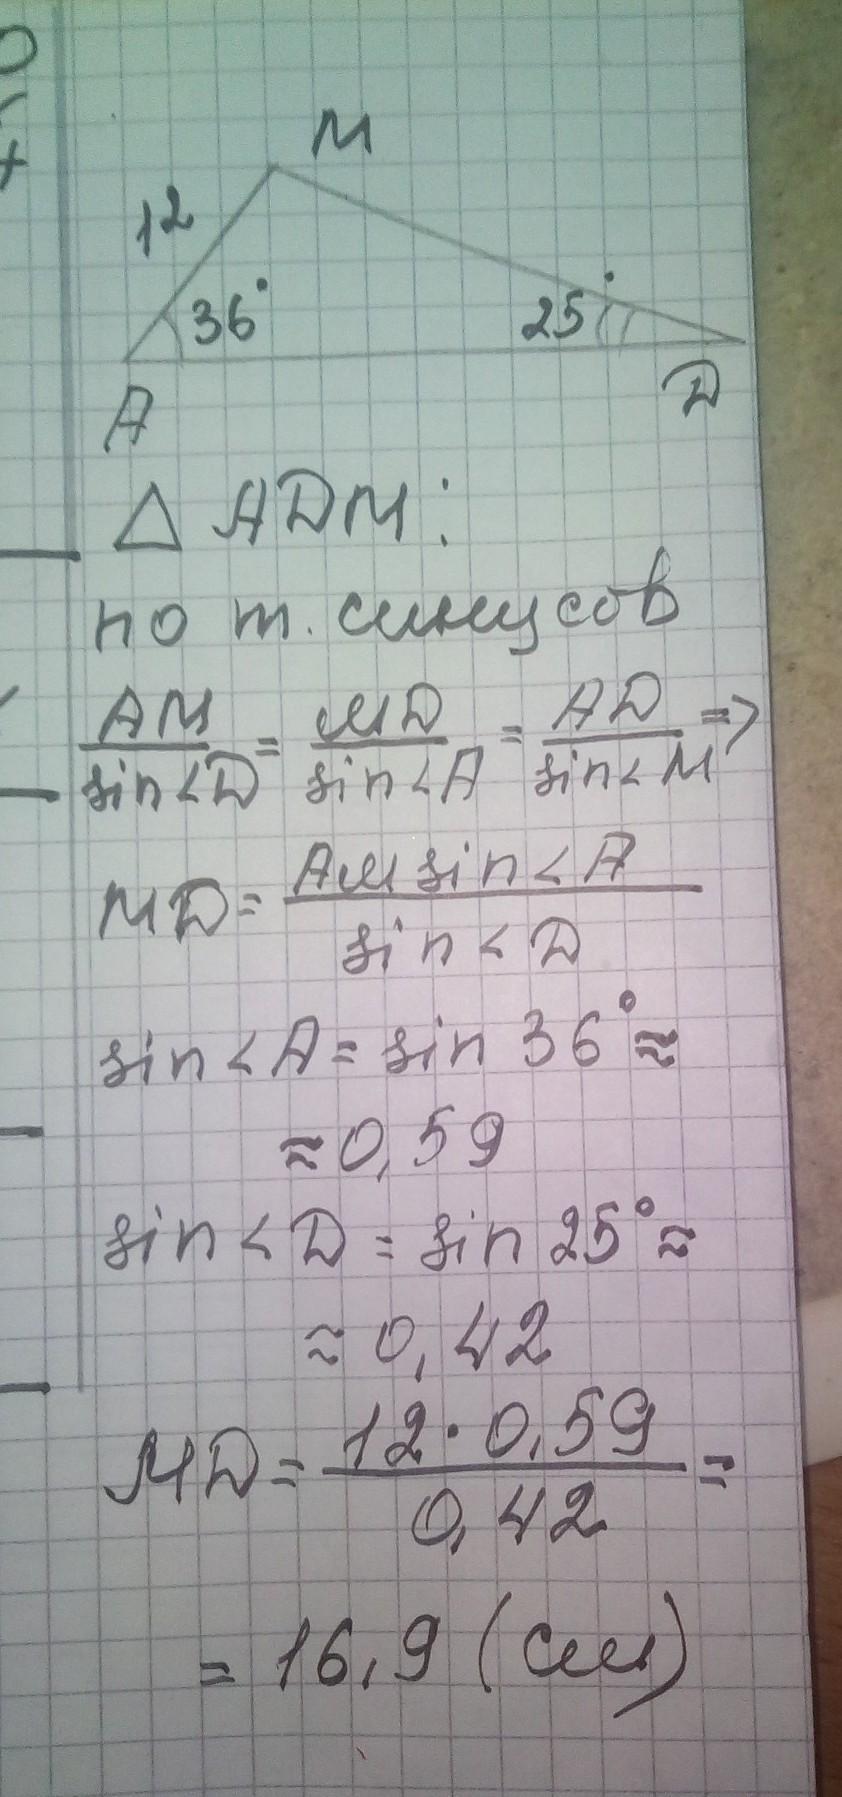 М
12
36°
25°
A
D
△ ADM:
по т. синусов
AM/sin<D = MD/sin<A = AD/sin<M =>
MD = AM sin<A / sin<D
sin<A = sin 36° ≈
≈ 0,59
sin<D = sin 25° ≈
≈ 0,42
MD = 12·0,59 / 0,42 =
= 16,9 (см)